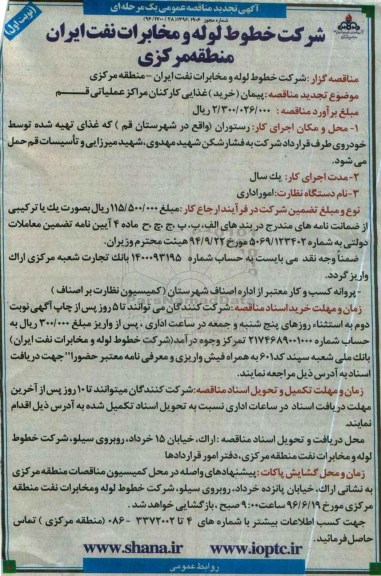 آگهی تجدید مناقصه عمومی یک مرحله ای
(نوبت اول)
شرکت خطوط لوله و مخابرات نفت ایران
منطقه مرکزی
مناقصه گزار: شرکت خطوط لوله و مخابرات نفت ایران - منطقه مرکزی
موضوع تجدید مناقصه: پیمان (خرید) غذایی کارکنان مراکز عملیاتی قم
مبلغ برآورد مناقصه : ۲/۳۰۰/۰۲۶/۰۰۰ ریال
۱- محل و مکان اجرای کار: رستوران (واقع در شهرستان قم ) که غذای تهیه شده توسط
خودروی طرف قرارداد شرکت به فشار شکن شهید مهدوی، شهید میرزایی و تأسیسات قم حمل
می شود.
۲- مدت اجرای کار: یك سال
۳- نام دستگاه نظارت: امور اداری
نوع و مبلغ تضمین شرکت در فرآیند ارجاع کار: مبلغ ۱۱۵/۵۰۰/۰۰۰ ریال بصورت یك یا ترکیبی
از ضمانت نامه های مندرج در بند های الف، ب، پ، ج، چ، ح ماده ۴ آیین نامه تضمین معاملات
دولتی به شماره ۵۰۶۹/۱۲۳۴۰۲ مورخ ۹۴/۹/۲۲ هیئت محترم وزیران.
ضمناً وجه نقد می بایست به حساب شماره ۱۴۰۰۰۹۳۱۹۵ بانك تجارت شعبه مرکزی اراك
واریز گردد.
- پروانه کسب و کار معتبر از اداره اصناف شهرستان (کمیسیون نظارت بر اصناف )
زمان و مهلت خرید اسناد مناقصه: شرکت کنندگان می توانند تا ۵ روز پس از چاپ آگهی نوبت
دوم به استثناء روزهای پنج شنبه و جمعه در ساعت اداری ، پس از واریز مبلغ ۳۰۰/۰۰۰ ریال به
حساب شماره ۲۱۷۴۶۸۹۰۰۱۰۰۰ تمرکز وجوه درآمد (شرکت خطوط لوله و مخابرات نفت ایران)
بانك ملی شعبه سپند کد ۶۰۱ به همراه فیش واریزی و معرفی نامه معتبر حضورا" جهت دریافت
اسناد به آدرس ذیل مراجعه نمایند.
زمان و مهلت تکمیل و تحویل اسناد مناقصه: شرکت کنندگان میتوانند تا ۱۰ روز پس از آخرین
مهلت دریافت اسناد در ساعات اداری نسبت به تحویل اسناد تکمیل شده به آدرس ذیل اقدام
نمایند.
محل دریافت و تحویل اسناد مناقصه : اراك، خیابان ۱۵ خرداد، روبروی سیلو، شرکت خطوط
لوله و مخابرات نفت منطقه مرکزی، دفتر امور قراردادها
زمان و محل گشایش پاکات : پیشنهادهای واصله در محل کمیسیون مناقصات منطقه مرکزی
به نشانی اراك، خیابان پانزده خرداد، روبروی سیلو، شرکت خطوط لوله و مخابرات نفت منطقه
مرکزی مورخ ۹۶/۶/۱۹ ساعت ۹:۰۰ صبح ، بازگشایی خواهد شد.
جهت کسب اطلاعات بیشتر با شماره های ۴ تا ۳۳۷۲۰۰۲ - ۰۸۶ (منطقه مرکزی ) تماس
حاصل فرمائید.
www.shana.ir www.ioptc.ir
روابط عمومی